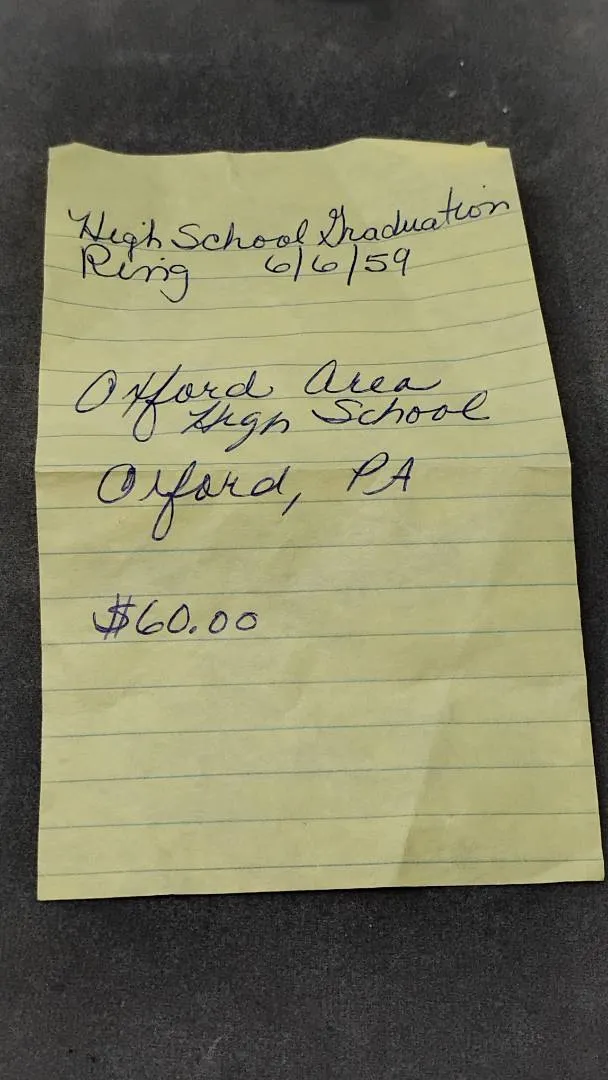 High School Graduation
Ring 6/6/59
Oxford Area
High School
Oxford, PA
$60.00